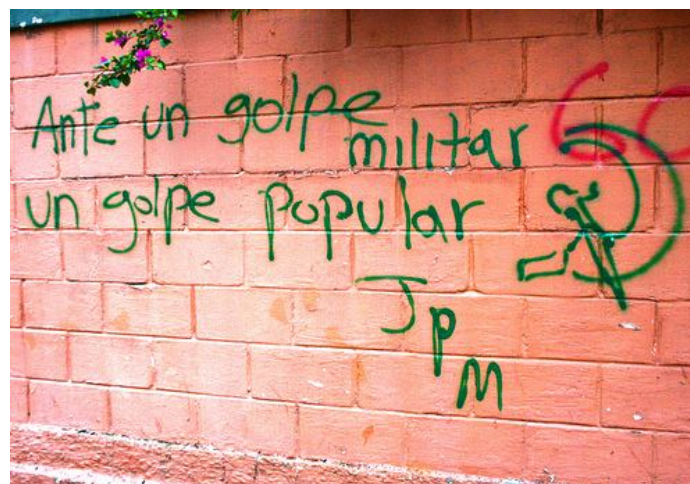 Ante un golpe militar
un golpe popular
JPM